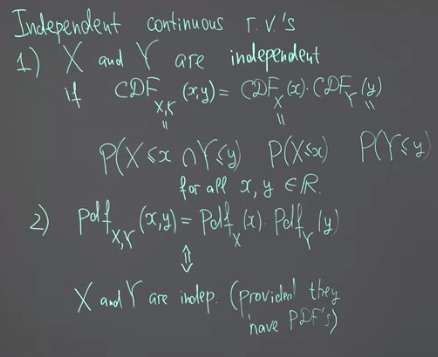 Independent continuous r.v.'s
1) X and Y are independent
if CDF_{X,Y} (x,y) = CDF_X (x) · CDF_Y (y)
= = =
P(X ≤ x ∩ Y ≤ y) P(X ≤ x) P(Y ≤ y)
for all x, y ∈ ℝ.
2) Pdf_{X,Y} (x,y) = Pdf_X (x) · Pdf_Y (y)
⇕
X and Y are indep. (provided they
have PDF's)